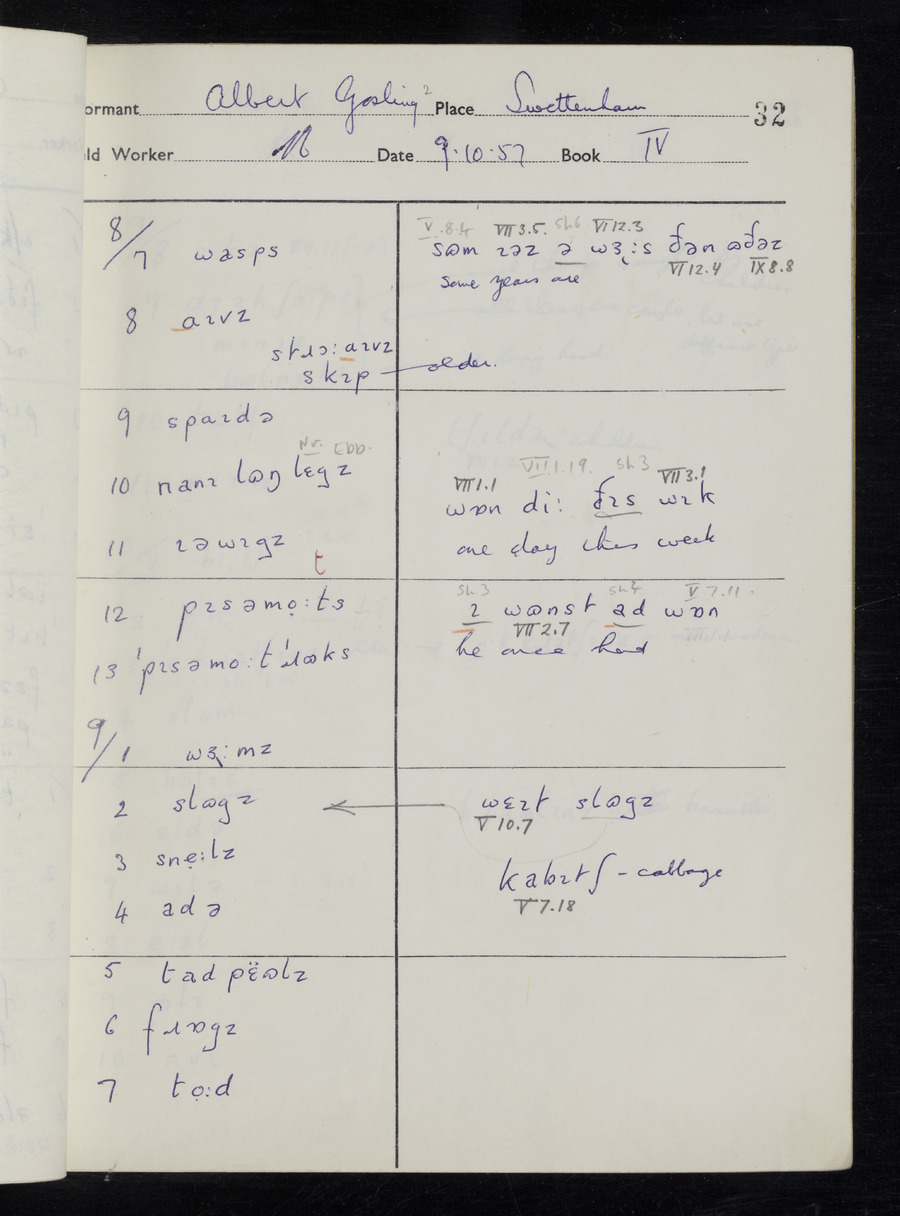 ormant Albert Gosling² Place Swettenham 32
ld Worker Date 9.10.57 Book IV
V.8.4 VII 3.5. Sh6 VI 12.3
8/7 wasps
sɷm ɪəz ə wɜ̣:s ðən ɷðəz
VI 12.4 IX 8.8
some years are
8 aɪvz
stɹɔ: aɪvz
skɪp — older.
9 spaɪdə
Nr. Ebb.
10 nanɪ lɷŋ lɛgz
VII 1.1 VII.1.19. Sh3 VII 3.1
wɒn di: ðɪs wɪk
11 ɪəwɪgz
one day this week
t
Sh3 Sh4 V 7.11.
12 pɪsəmọ:ts
ɪ wɷnst ad wɒn
VII 2.7
he once had
13 ˈpɪsəmo:tˈɹɷks
9/1 wɜ̣:mz
2 slɷgz
wɛɪt slɷgz
V 10.7
3 snẹ:lz
kabɪtʃ - cabbage
V 7.18
4 adə
5 tadpɛ̈ɷlz
6 fɹɒgz
7 tọ:d